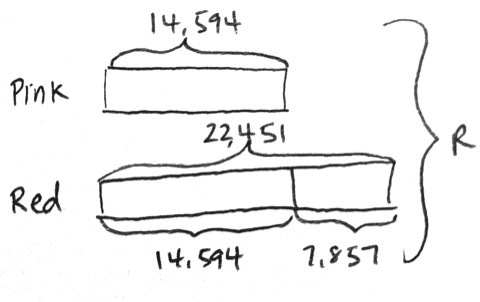 14,594
Pink
22,451
R
Red
14,594
7,857